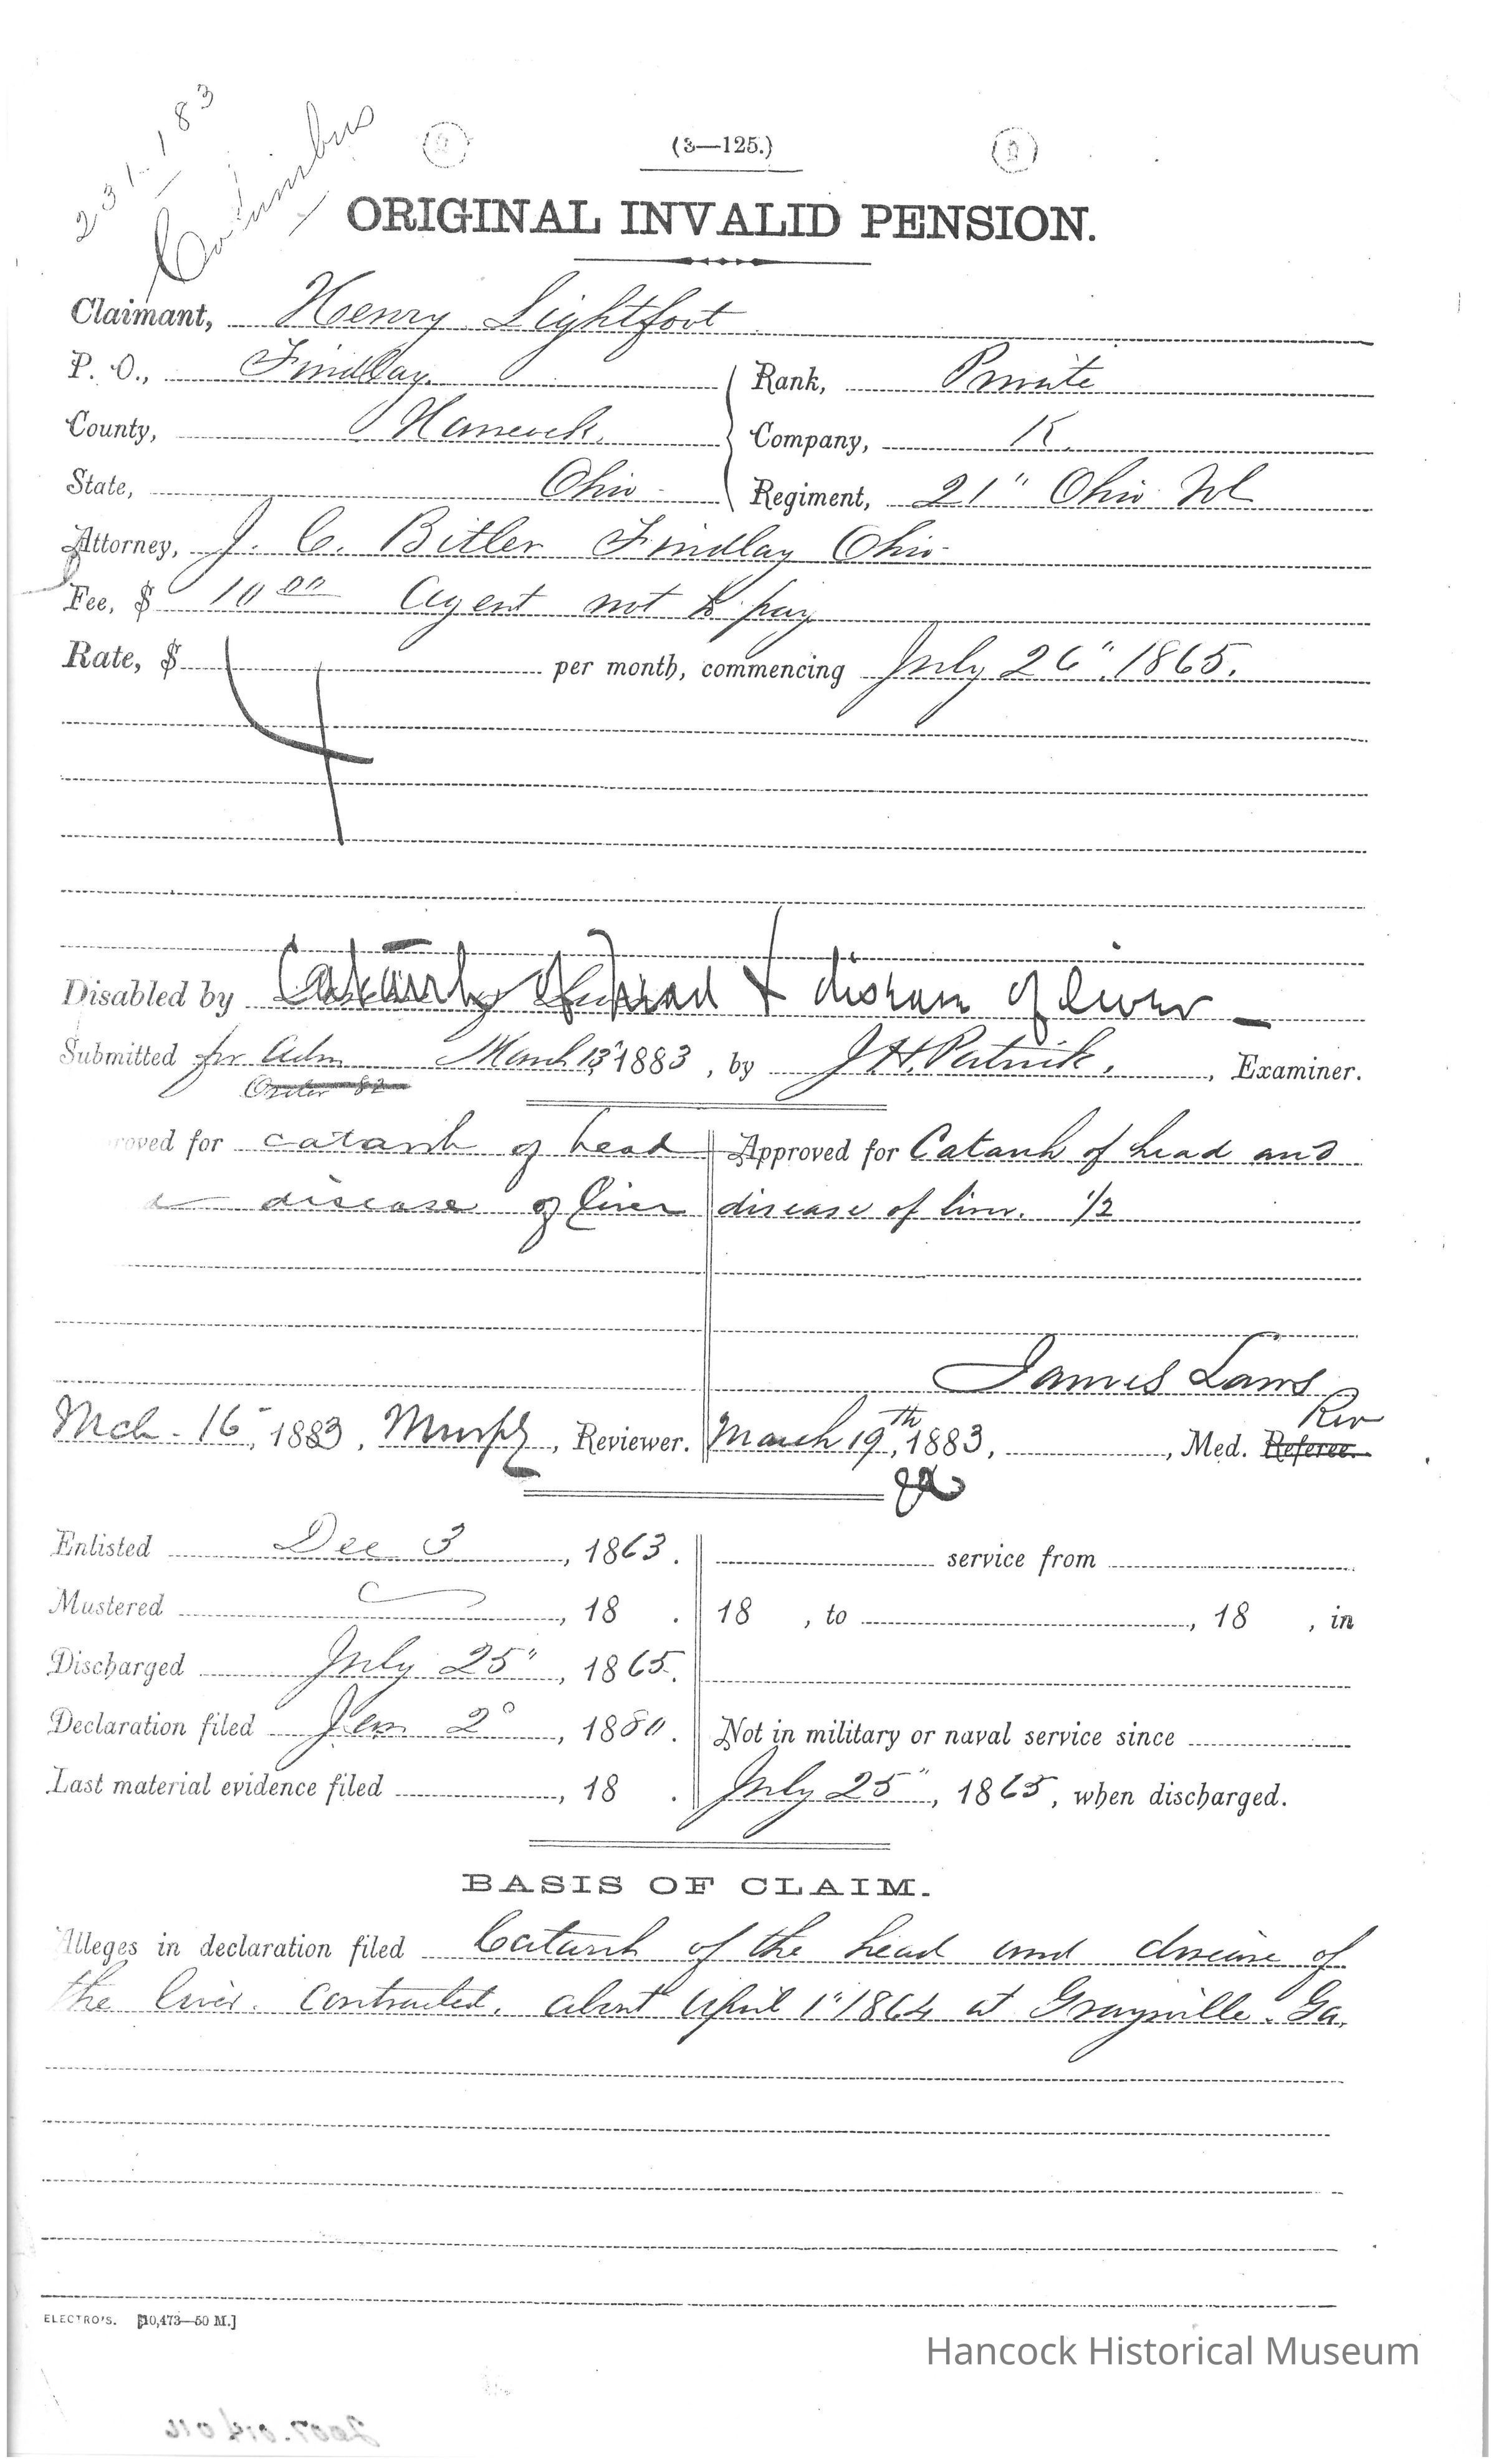 231.183
Columbus
(3—125.)
ORIGINAL INVALID PENSION.
Claimant, Henry Lightfoot
P. O., Findlay
Rank, Private
County, Hancock
Company, K.
State, Ohio
Regiment, 21" Ohio Vol
Attorney, J. C. Bitler Findlay Ohio
Fee, $ 10 00 Agent not to pay
Rate, $ 4 per month, commencing July 26", 1865.
Disabled by Catarrh of head & disease of liver
Submitted for Adm March 13", 1883, by J H. Patrick, Examiner.
Order 82
roved for catarrh of head
& disease of liver
Approved for Catarrh of head and
disease of liver. 1/2
James Laws
Rev
Mch. 16, 1883, Murphy, Reviewer.
March 19th, 1883, , Med. Referee.
Enlisted Dec 3, 1863.
service from
Mustered , 18 .
18 , to , 18 , in
Discharged July 25", 1865.
Declaration filed Jan 2°, 1880.
Not in military or naval service since
Last material evidence filed , 18 .
July 25", 1865, when discharged.
BASIS OF CLAIM.
Alleges in declaration filed Catarrh of the head and disease of
the liver. Contracted. about April 1" 1864 at Graysville. Ga.
ELECTRO'S. [10,473—50 M.]
Hancock Historical Museum